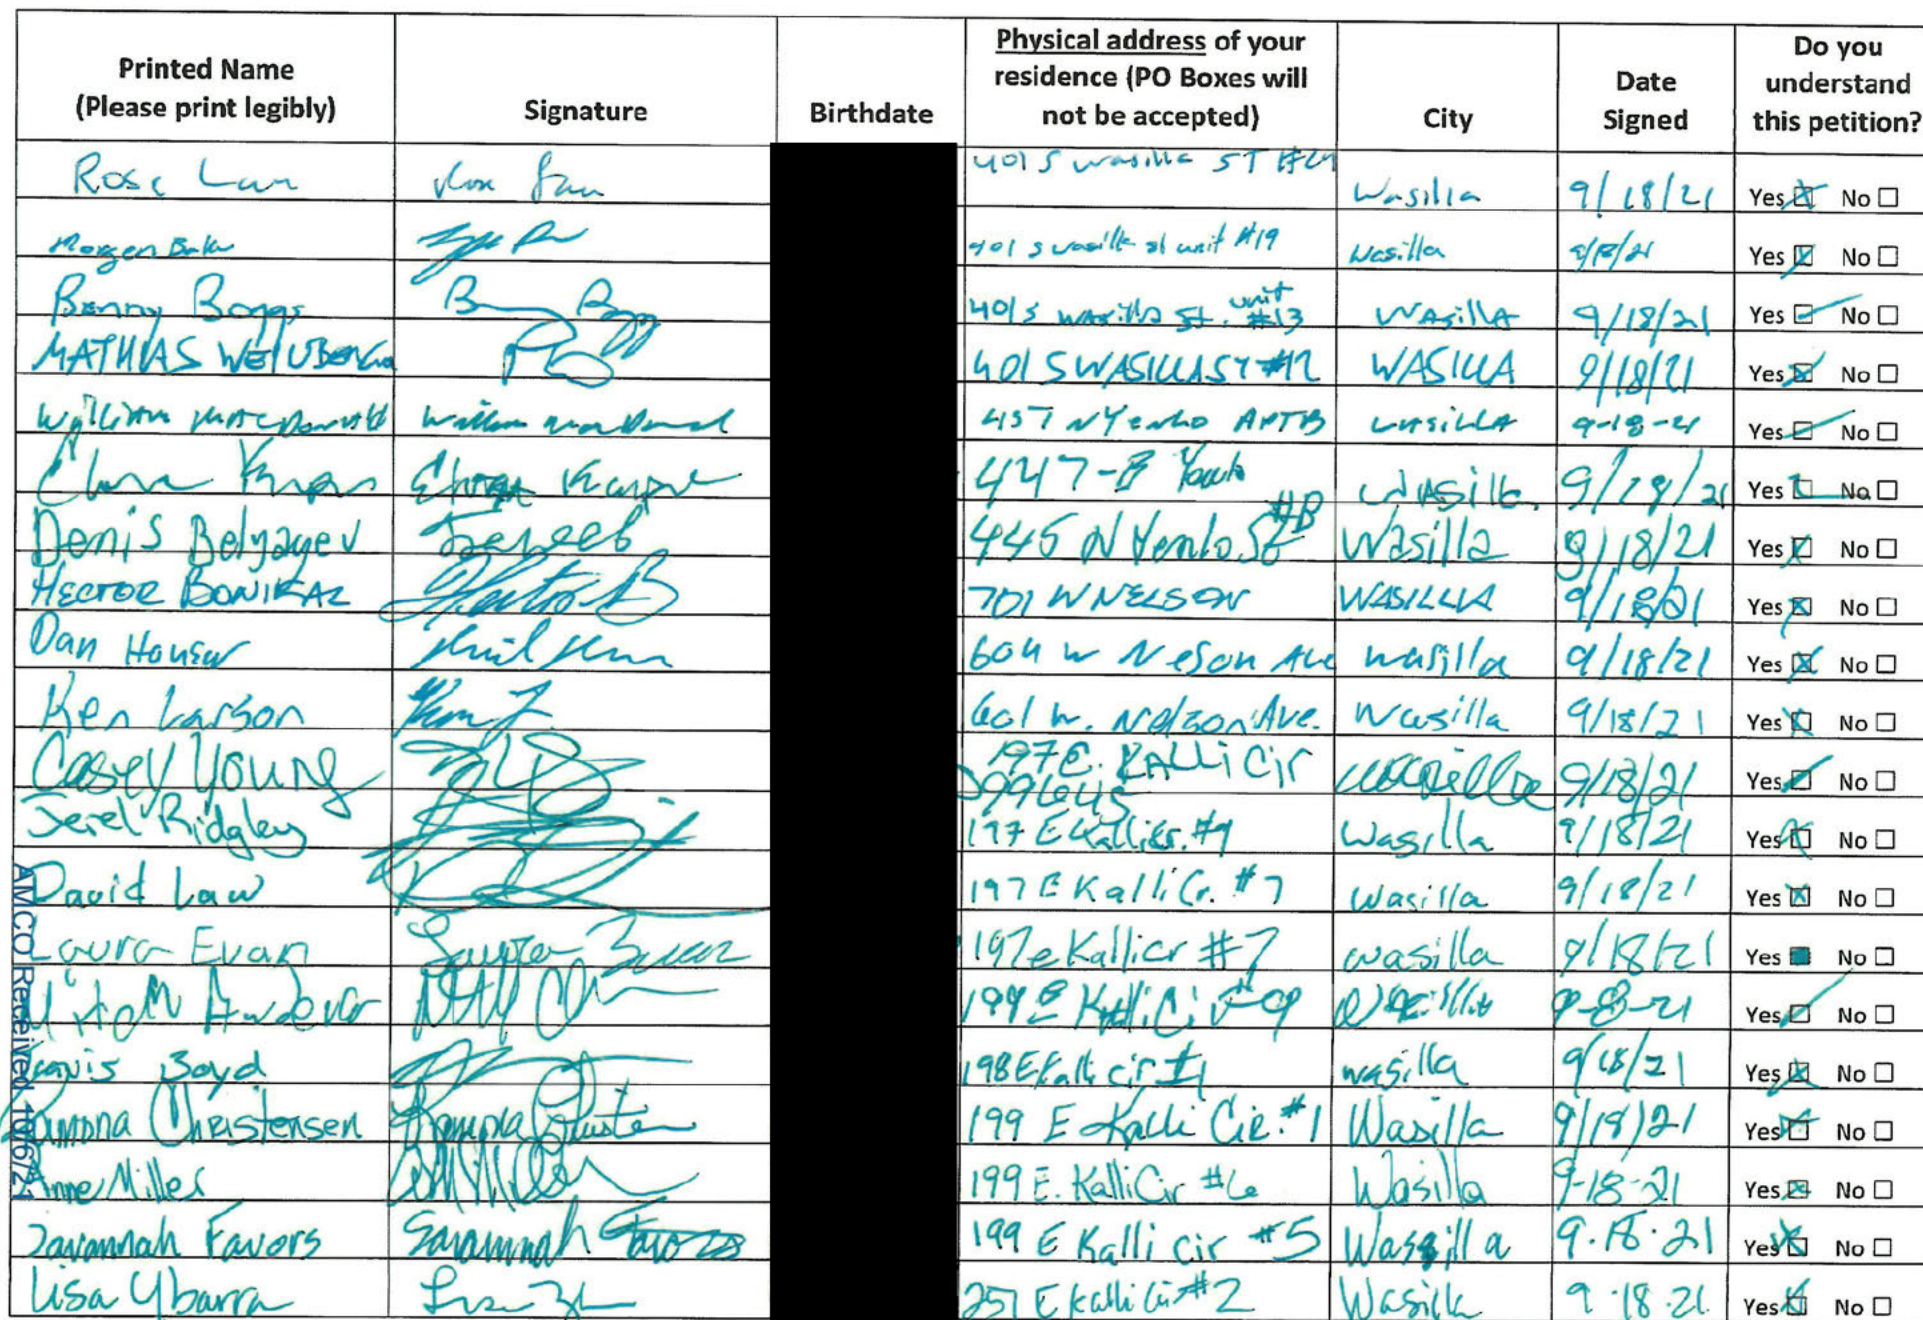 Printed Name (Please print legibly) Signature Birthdate Physical address of your residence (PO Boxes will not be accepted) City Date Signed Do you understand this petition?
Rose 401 S Wasilla ST Wasilla 9/18/21 Yes No
Morgen 401 S Wasilla st unit #19 Wasilla 9/18/21 Yes No
Benny Boggs 401 S Wasilla St. unit #13 WAsillA 9/18/21 Yes No
MATHIAS 401 S WASILLA ST #12 WASILLA 9/18/21 Yes No
William MacDonald William MacDonald 457 N Yenlo APT B WASILLA 9-18-21 Yes No
447-B Wasilla 9/18/21 Yes No
Denis Belyayev 445 N Yenlo St #B Wasilla 9/18/21 Yes No
HECTOR Hector B 701 W NELSON WASILLA 9/18/21 Yes No
Dan Houser 604 W Neson Ave wasilla 9/18/21 Yes No
Ken Larson 601 W. Nelson Ave. Wasilla 9/18/21 Yes No
Casey Young 197 E. KALLi Cir 99645 wasilla 9/18/21 Yes No
Jerel Ridgley 197 E Kalli cr. #9 Wasilla 9/18/21 Yes No
David Law 197 E Kalli Cr. #7 Wasilla 9/18/21 Yes No
Laura Evan 197 e Kalli cr #7 wasilla 9/18/21 Yes No
199 E Kalli Cir Wasilla 9-8-21 Yes No
Travis Boyd 198 E Kalli cir #1 wasilla 9/18/21 Yes No
Ramona Christensen Ramona 199 E Kalli Cir. #1 Wasilla 9/18/21 Yes No
Anne Miller 199 E. Kalli Cir #6 Wasilla 9-18-21 Yes No
Savannah Favors Savannah Favors 199 E Kalli cir #5 Wasilla 9.18.21 Yes No
Lisa Ybarra 251 E Kalli Cir #2 Wasilla 9-18-21 Yes No
AMCO Received 10/6/21